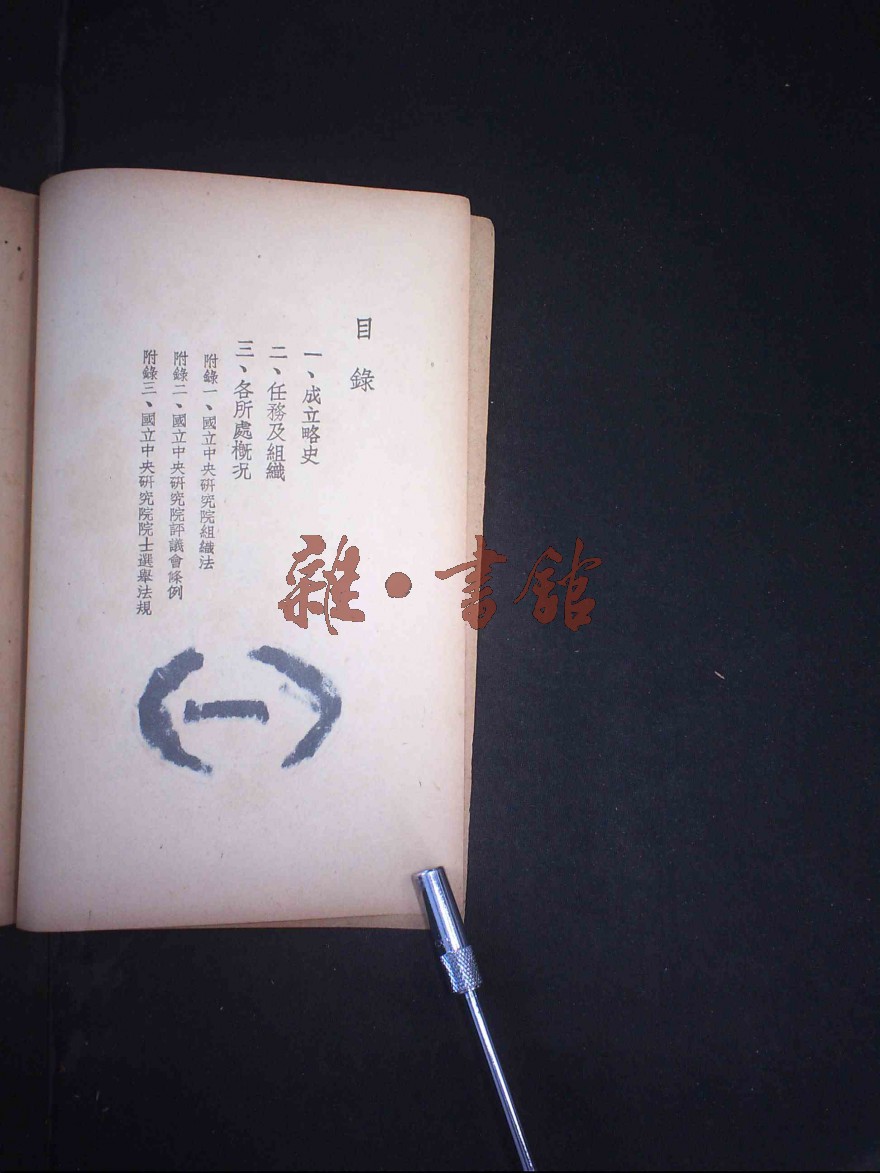 目錄
一、成立略史
二、任務及組織
三、各所處概況
附錄一、國立中央研究院組織法
附錄二、國立中央研究院評議會條例
附錄三、國立中央研究院院士選舉法規
(一)
雜·書館